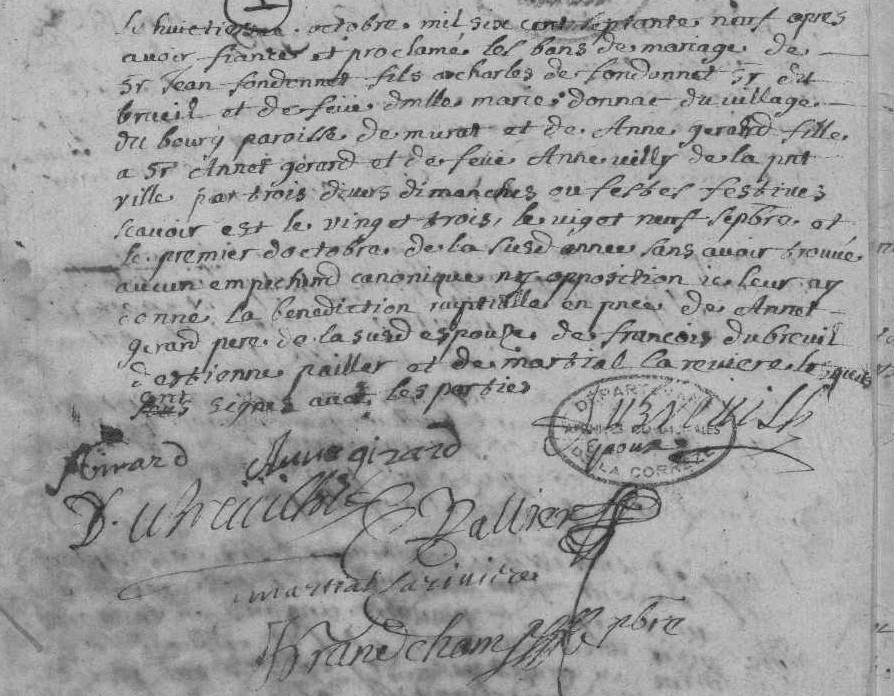 Le huictiesme octobre mil six cent septante neuf apres
avoir fiancés et proclamé les bans de mariage de
Sr Jean fondonnet fils a charles de fondonnet Sr du
brueil et de feüe dmlle marie donnac du village
du bourg paroisse de murat et de Anne gerard fille
a Sr Annet gerard et de feüe Anne villy de la pnt
ville par trois divers dimanches ou festes festives
scavoir est le vingt trois, le vigt neuf sepbre et
le premier doctobre de la susd année sans avoir trouvé
aucun empechemt canonique ny opposition ie leur ay
donné la benediction nuptialle en pnce de Annet
gerard pere de la susd espouze de françois dubreuil
destienne pailler et de martial lariviere lesquels
ont signés avec les parties
DEPARTEMENTALES
DE LA CORREZE
Epoux
Girard Anne girard
Dubreuilh Pallier
martial Lariviere
Grandchamp pbre